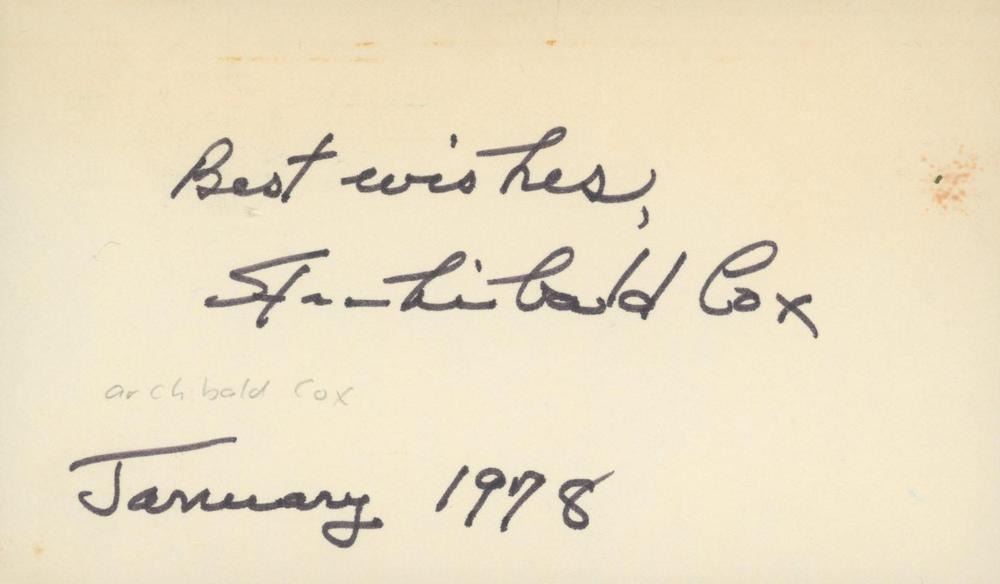 Best wishes,
Archibald Cox
archibald Cox
January 1978